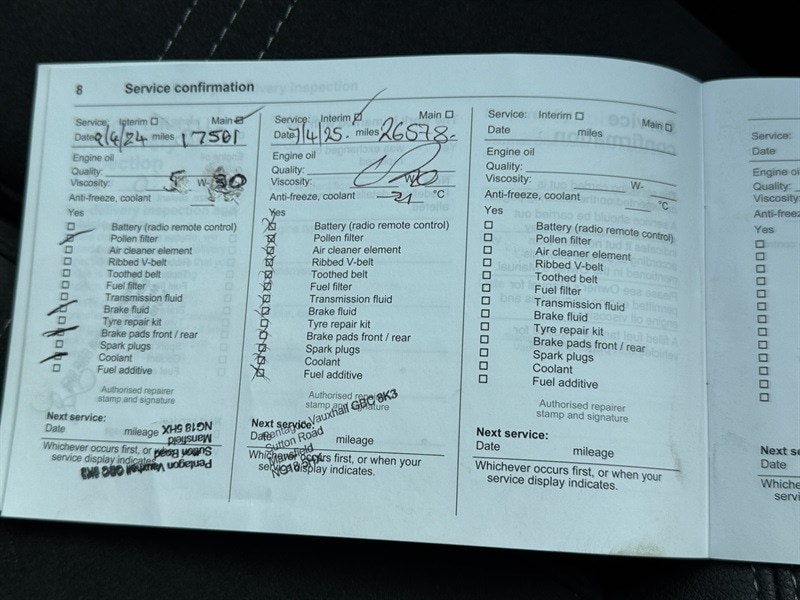 8 Service confirmation
Service: Interim Main
Date 9/4/24 miles 17561
Engine oil
Quality:
Viscosity: 5 W- 30
Anti-freeze, coolant
Yes
Battery (radio remote control)
Pollen filter
Air cleaner element
Ribbed V-belt
Toothed belt
Fuel filter
Transmission fluid
Brake fluid
Tyre repair kit
Brake pads front / rear
Spark plugs
Coolant
Fuel additive
Authorised repairer
stamp and signature
Next service:
Date mileage
Whichever occurs first, or
service display indicates.
Pentagon Vauxhall GBC 8K3
Sutton Road
Mansfield
NG18 5HX
Service: Interim Main
Date 7/4/25. miles 26578
Engine oil
Quality:
Viscosity: W-
Anti-freeze, coolant -21 °C
Yes
Battery (radio remote control)
Pollen filter
Air cleaner element
Ribbed V-belt
Toothed belt
Fuel filter
Transmission fluid
Brake fluid
Tyre repair kit
Brake pads front / rear
Spark plugs
Coolant
Fuel additive
Authorised repairer
stamp and signature
Next service:
Date mileage
Whichever occurs first, or when your
service display indicates.
Pentagon Vauxhall GBC 8K3
Sutton Road
Mansfield
NG18 5HX
Service: Interim Main
Date miles
Engine oil
Quality:
Viscosity: W-
Anti-freeze, coolant °C
Yes
Battery (radio remote control)
Pollen filter
Air cleaner element
Ribbed V-belt
Toothed belt
Fuel filter
Transmission fluid
Brake fluid
Tyre repair kit
Brake pads front / rear
Spark plugs
Coolant
Fuel additive
Authorised repairer
stamp and signature
Next service:
Date mileage
Whichever occurs first, or when your
service display indicates.
Service:
Date
Engine oil
Quality:
Viscosity:
Anti-freeze
Yes
Next se
Date
Whiche
servi